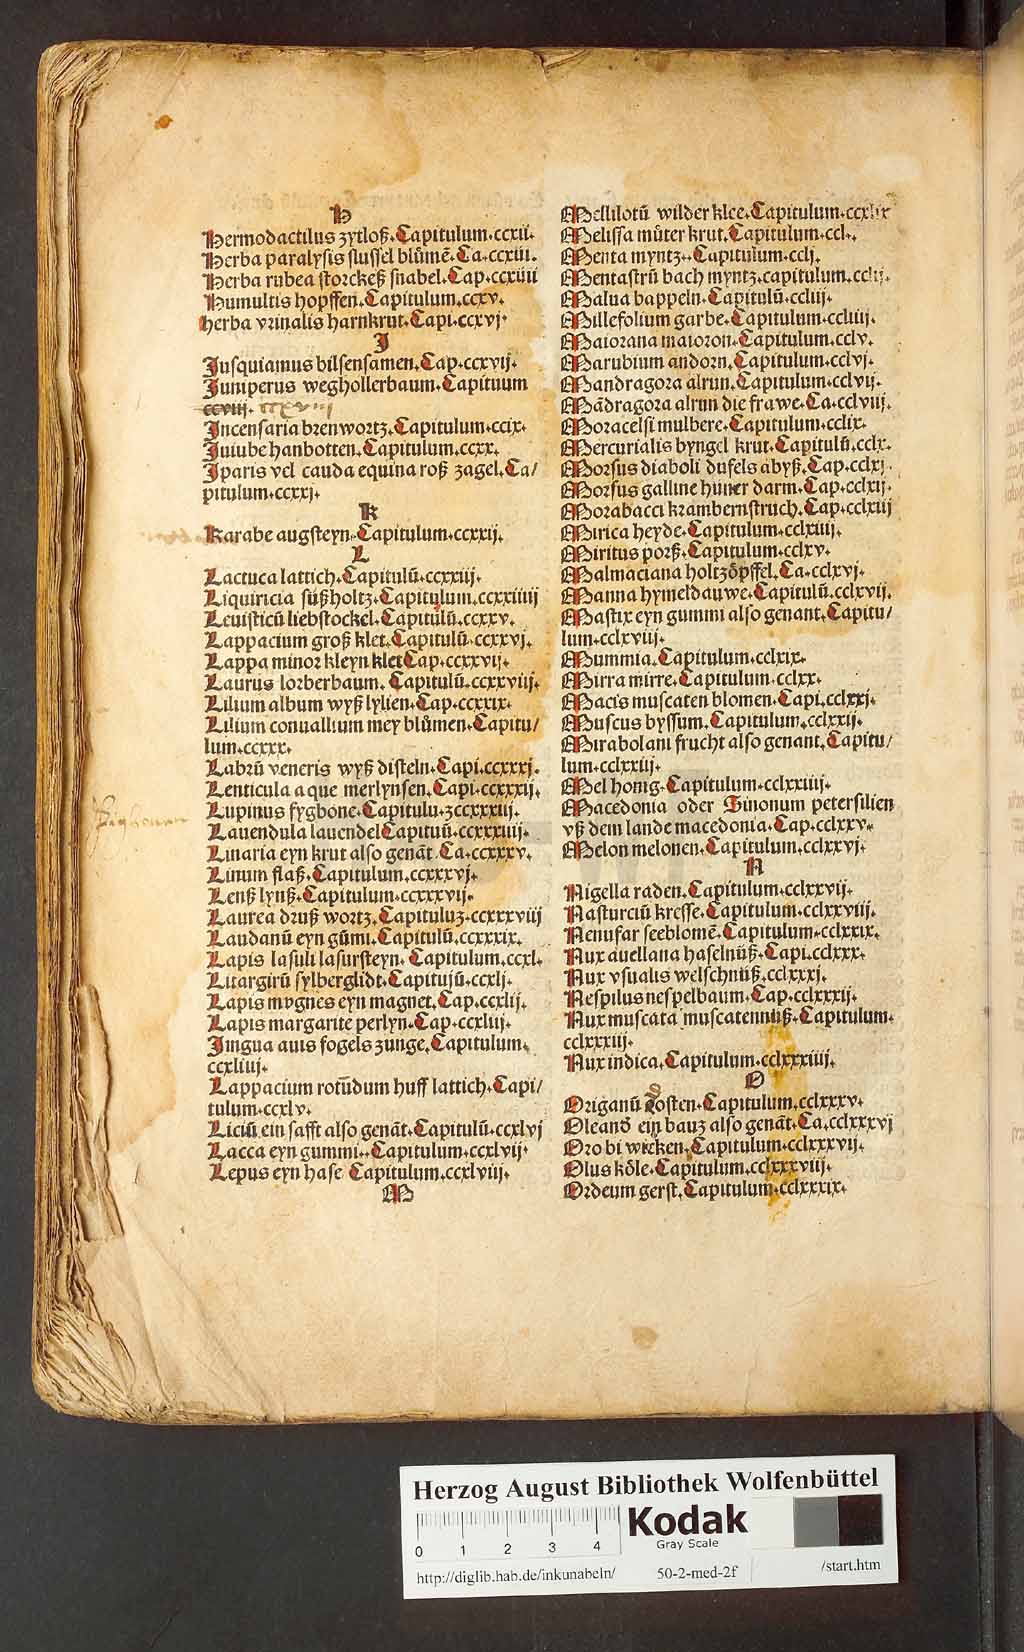 H
Hermodactilus zytloß.Capitulum.ccxii.
Herba paralysis slussel blůmē.Ca.ccxiii.
Herba rubea storckeß snabel.Cap.ccxiiii
Humultis hopffen.Capitulum.ccxv.
herba vrinalis harnkrut.Capi.ccxvj.
J
Jusquiamus bilsensamen.Cap.ccxvij.
Juniperus weghollerbaum.Capituum
ccviij. ccxviii
Jncensaria brenwortz.Capitulum.ccix.
Juiube hanbotten.Capitulum.ccxx.
Jparis vel cauda equina roß zagel.Ca/
pitulum.ccxxj.
K
Karabe augsteyn.Capitulum.ccxxij.
L
Lactuca lattich.Capitulū.ccxxiij.
Liquiricia süßholtz.Capitulum.ccxxiiiij
Leuisticū liebstockel.Capitulū.ccxxv.
Lappacium groß klet.Capitulū.ccxxvj.
Lappa minor kleyn klet Cap.ccxxvij.
Laurus lorberbaum.Capitulū.ccxxviij.
Lilium album wyß lylien.Cap.ccxxix.
Lilium conuallium mey blůmen.Capitu/
lum.ccxxx.
Labrū veneris wyß disteln.Capi.ccxxxj.
Lenticula aque merlynsen.Capi.ccxxxij.
Lupinus fygbone.Capitulu.zccxxxiij.
Lauendula lauendel Capituū.ccxxxiiij.
Linaria eyn krut also genāt.Ca.ccxxxv.
Linum flaß.Capitulum.ccxxxvj.
Lenß lynß.Capitulum.ccxxxvij.
Laurea druß wortz.Capituluz.ccxxxviij
Laudanū eyn gūmi.Capitulū.ccxxxix.
Lapis lasuli lasursteyn.Capitulum.ccxl.
Litargirū sylberglidt.Capitujū.ccxlj.
Lapis magnes eyn magnet.Cap.ccxlij.
Lapis margarite perlyn.Cap.ccxliij.
Jingua auis fogels zunge.Capitulum.
ccxliiij.
Lappacium rotūdum huff lattich.Capi/
tulum.ccxlv.
Liciū ein safft also genāt.Capitulū.ccxlvj
Lacca eyn gummi.Capitulum.ccxlvij.
Lepus eyn hase Capitulum.ccxlviij.
M
Mellilotū wilder klee.Capitulum.ccxlix
Melissa můter krut.Capitulum.ccl.
Menta myntz.Capitulum.cclj.
Mentastrū bach myntz.capitulum.cclij.
Malua bappeln.Capitulū.ccliij.
Millefolium garbe.Capitulum.ccliiij.
Maiorana maioron.Capitulum.cclv.
Marubium andorn.Capitulum.cclvj.
Mandragora alrun.Capitulum.cclvij.
Mādragora alrun die frawe.Ca.cclviij.
Moracelsi mulbere.Capitulum.cclix.
Mercurialis byngel krut.Capitulū.cclx.
Morsus diaboli dufels abyß.Cap.cclxj.
Morsus galline hüner darm.Cap.cclxij.
Morabacci krambernstruch.Cap.cclxiij
Mirica heyde.Capitulum.cclxiiij.
Miritus porß.Capitulum.cclxv.
Malmaciana holtzöpffel.Ca.cclxvj.
Manna hymeldauwe.Capitulū.cclxvij.
Mastix eyn gummi also genant.Capitu/
lum.cclxviij.
Mummia.Capitulum.cclxix.
Mirra mirre.Capitulum.cclxx.
Macis muscaten blomen.Capi.cclxxj.
Muscus byssum.Capitulum.cclxxij.
Mirabolani frucht also genant.Capitu/
lum.cclxxiij.
Mel honig.Capitulum.cclxxiiij.
Macedonia oder Sinonum petersilien
vß dem lande macedonia.Cap.cclxxv.
Melon melonen.Capitulum.cclxxvj.
N
Nigella raden.Capitulum.cclxxvij.
Nasturciū kresse.Capitulum.cclxxviij.
Nenufar seeblomē.Capitulum.cclxxix.
Nux auellana haselnüß.Capi.cclxxx.
Nux vsualis welschnüß.cclxxxj.
Nespilus nespelbaum.Cap.cclxxxij.
Nux muscata muscatennüß.Capitulum.
cclxxxiij.
Nux indica.Capitulum.cclxxxiiij.
O
Origanū dosten.Capitulum.cclxxxv.
Oleand ein bauz also genāt.Ca.cclxxxvj
Orobi wicken.Capitulum.cclxxxvij.
Olus kôle.Capitulum.cclxxxviij.
Ordeum gerst.Capitulum.cclxxxix.
Herzog August Bibliothek Wolfenbüttel
0 1 2 3 4
Kodak
Gray Scale
http://diglib.hab.de/inkunabeln/ 50-2-med-2f /start.htm